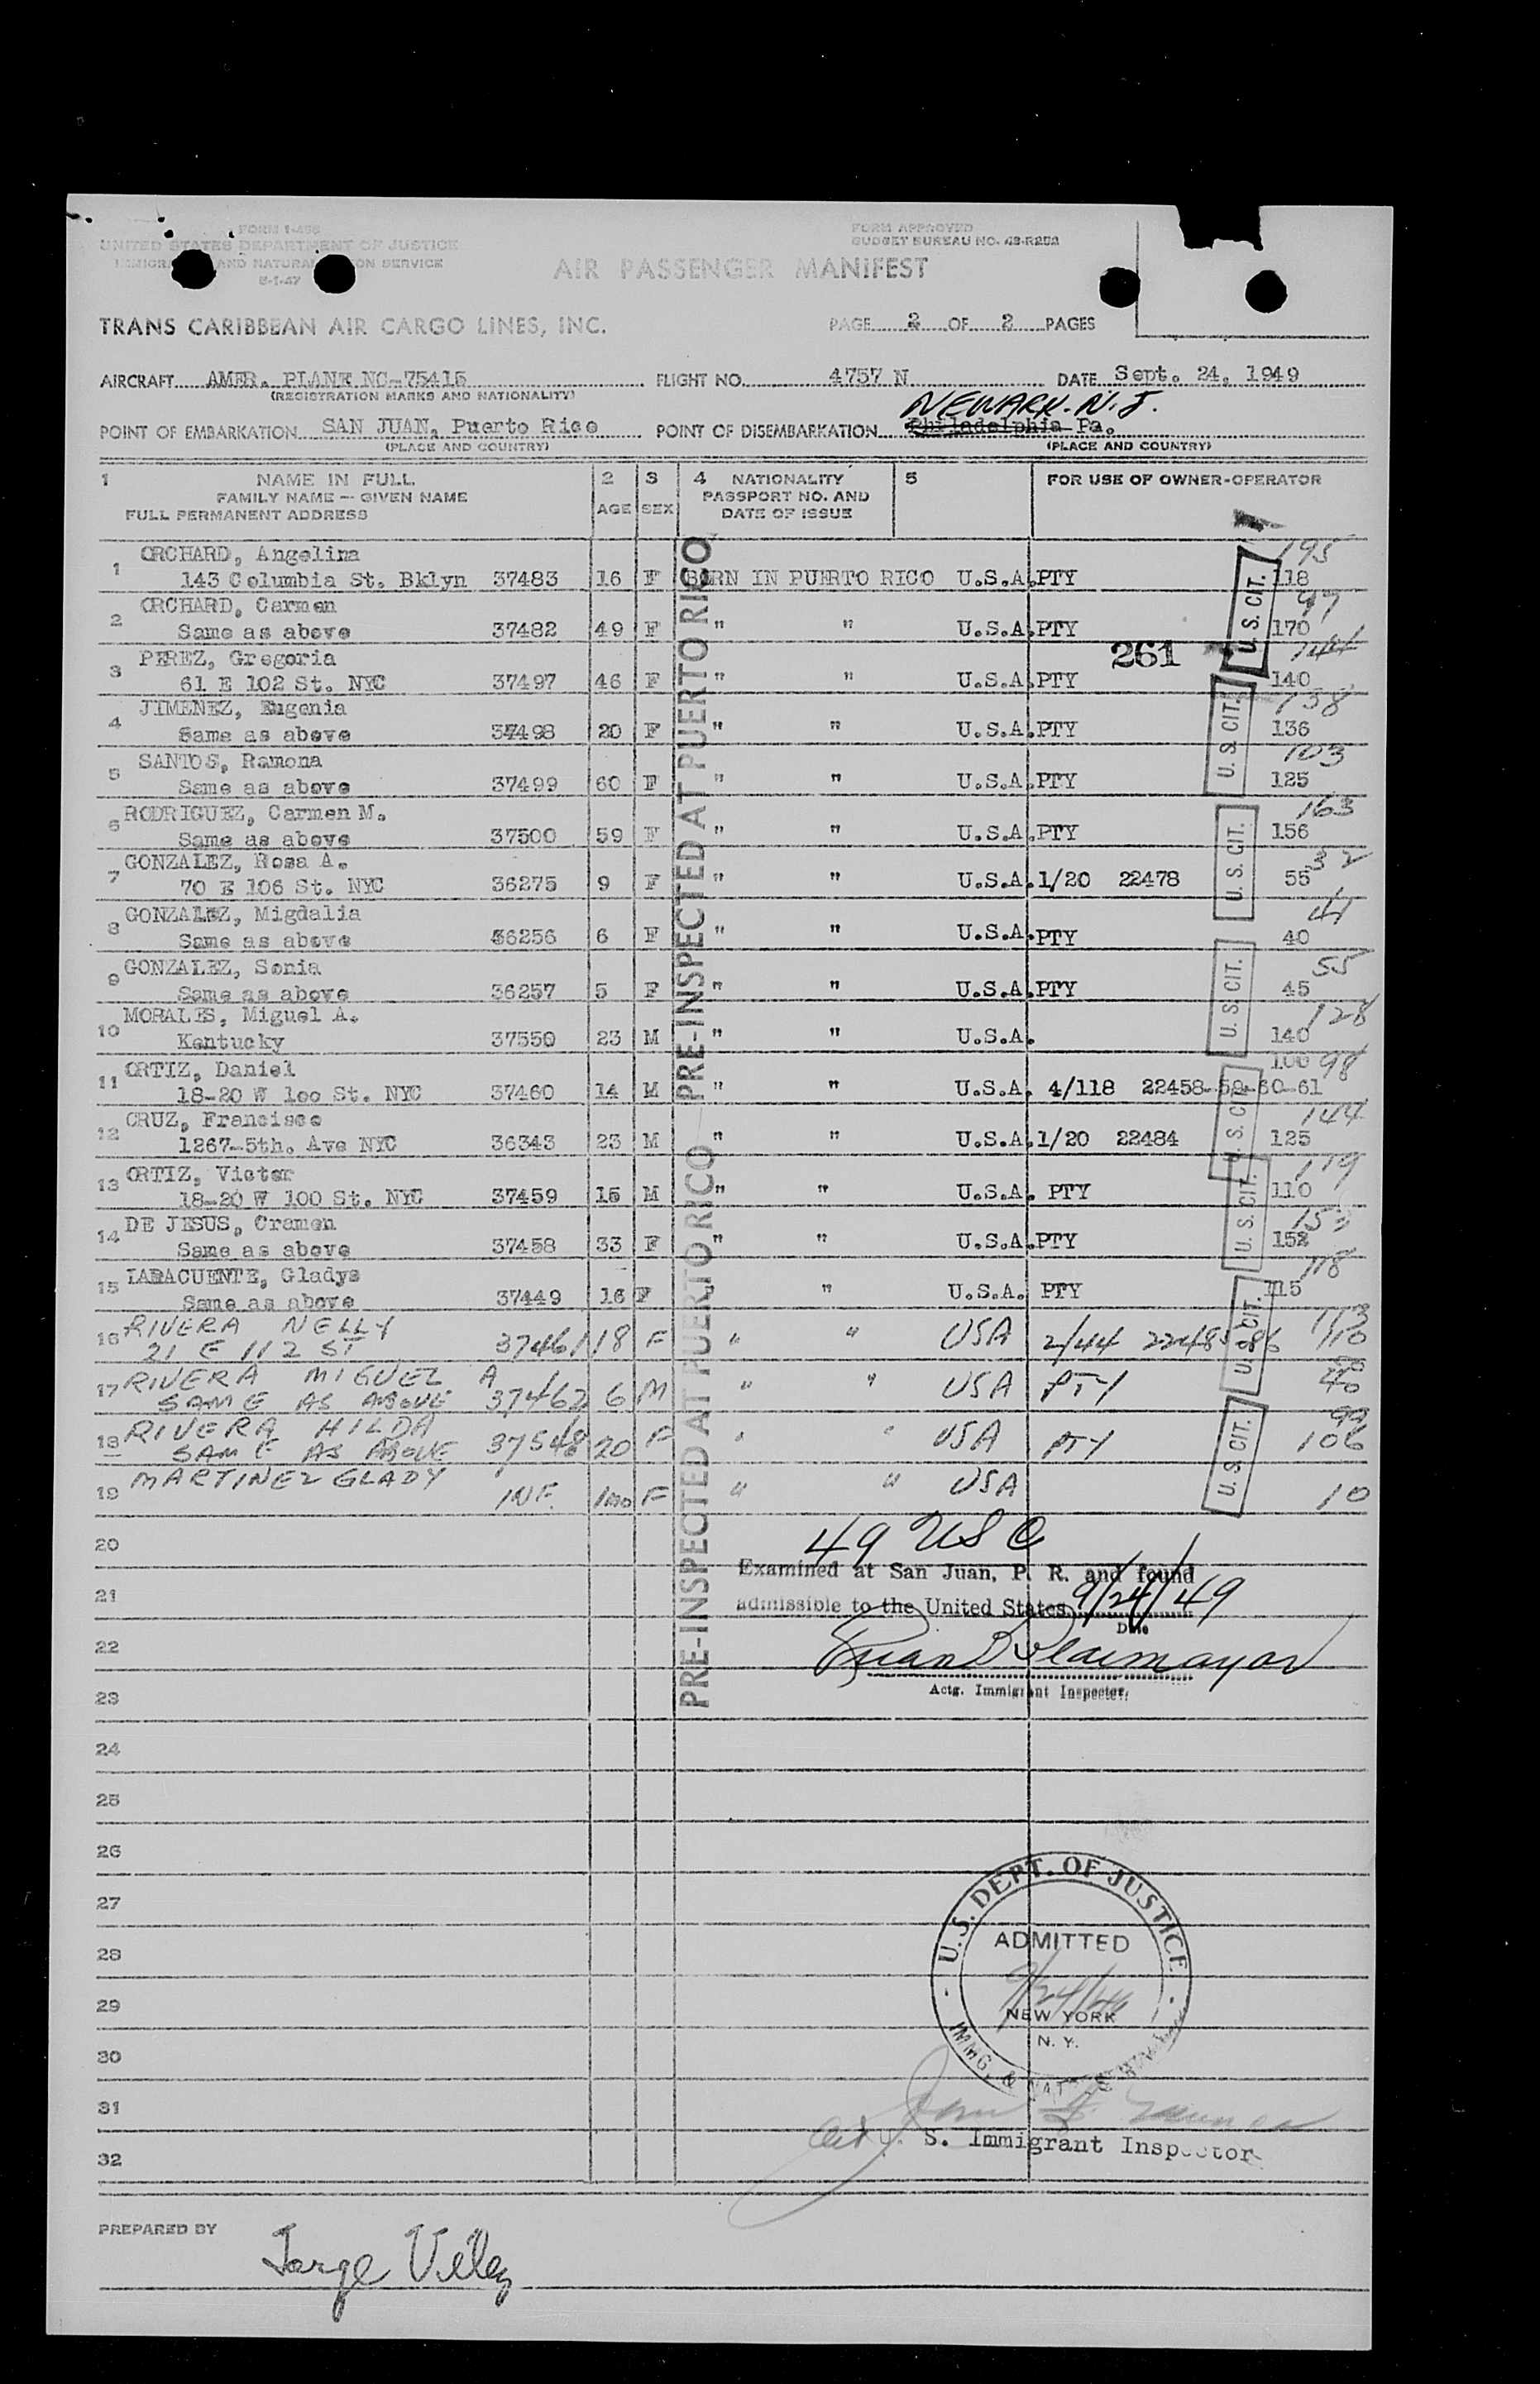 FORM I-466
UNITED STATES DEPARTMENT OF JUSTICE
IMMIGRATION AND NATURALIZATION SERVICE
FORM APPROVED
BUDGET BUREAU NO. 43-R252
AIR PASSENGER MANIFEST
TRANS CARIBBEAN AIR CARGO LINES, INC.
PAGE 2 OF 2 PAGES
AIRCRAFT AMER. PLANE NC-75415 FLIGHT NO. 4757 N DATE Sept. 24, 1949
(REGISTRATION MARKS AND NATIONALITY)
NEWARK. N.J.
POINT OF EMBARKATION SAN JUAN, Puerto Rico POINT OF DISEMBARKATION Philadelphia Pa.
(PLACE AND COUNTRY) (PLACE AND COUNTRY)
1 NAME IN FULL 2 3 4 NATIONALITY 5 FOR USE OF OWNER-OPERATOR
FAMILY NAME — GIVEN NAME PASSPORT NO. AND
FULL PERMANENT ADDRESS AGE SEX DATE OF ISSUE
ORCHARD, Angelina 195
1 143 Columbia St. Bklyn 37483 16 F BORN IN PUERTO RICO U.S.A. PTY 118
ORCHARD, Carmen 97
2 Same as above 37482 49 F " " U.S.A. PTY 170
261
PEREZ, Gregoria 144
3 61 E 102 St. NYC 37497 46 F " " U.S.A. PTY 140
JIMENEZ, Eugenia 138
4 Same as above 37498 20 F " " U.S.A. PTY 136
SANTOS, Ramona 103
5 Same as above 37499 60 F " " U.S.A. PTY 125
RODRIGUEZ, Carmen M. 163
6 Same as above 37500 59 F " " U.S.A. PTY 156
GONZALEZ, Rosa A. 32
7 70 E 106 St. NYC 36275 9 F " " U.S.A. 1/20 22478 55
GONZALEZ, Migdalia 41
8 Same as above 36256 6 F " " U.S.A. PTY 40
GONZALEZ, Sonia 55
9 Same as above 36257 5 F " " U.S.A. PTY 45
MORALES, Miguel A. 128
10 Kentucky 37550 23 M " " U.S.A. 140
ORTIZ, Daniel 100 98
11 18-20 W 1oo St. NYC 37460 14 M " " U.S.A. 4/118 22458-59-60-61
CRUZ, Francisco 144
12 1267-5th. Ave NYC 36343 23 M " " U.S.A. 1/20 22484 125
ORTIZ, Victor 119
13 18-20 W 100 St. NYC 37459 15 M " " U.S.A. PTY 110
DE JESUS, Cramen
14 Same as above 37458 33 F " " U.S.A. PTY 152
LABACUENTE, Gladys 118
15 Same as above 37449 16 F " " U.S.A. PTY 115
RIVERA NELLY 113
16 21 E 112 ST 37461 18 F " " USA 2/44 22485-86 110
17 RIVERA MIGUEL A
SAME AS ABOVE 37462 6 M " " USA PTY 40
RIVERA HILDA 99
18 SAME AS ABOVE 37548 20 F " " USA PTY 106
MARTINEZ GLADY
19 INF. 1mo F " " USA 10
PRE-INSPECTED AT PUERTO RICO
PRE-INSPECTED AT PUERTO RICO
U. S. CIT.
U. S. CIT.
U. S. CIT.
U. S. CIT.
U. S. CIT.
U. S. CIT.
U. S. CIT.
U. S. CIT.
20
49 USC
Examined at San Juan, P. R. and found
21
admissible to the United States 9/24/49
Date
22
Actg. Immigrant Inspector.
23
24
25
26
27
28
29
30
31
32
U.S. DEPT. OF JUSTICE
ADMITTED
9/24/49
NEW YORK
N. Y.
IMMG. & NAT
U. S. Immigrant Inspector
PREPARED BY Jorge Velez